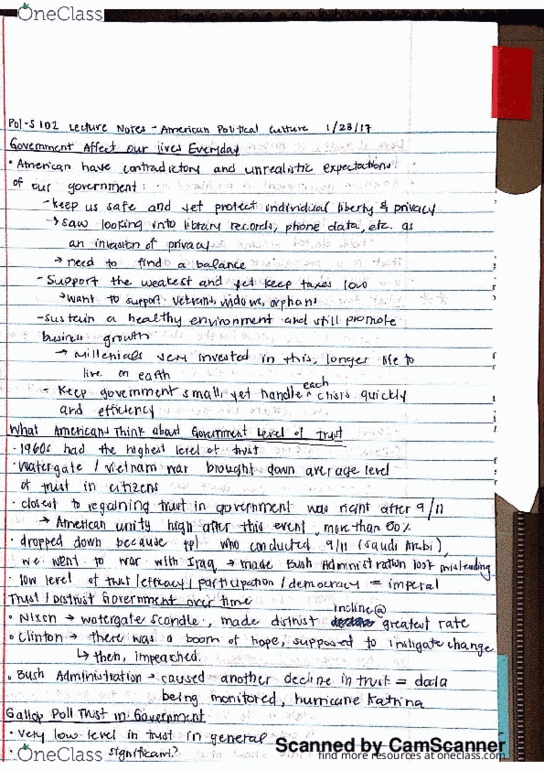 OneClass
Pol-S 102 Lecture Notes - American Political Culture 1/23/17
Government Affect our lives Everyday
• American have contradictory and unrealistic expectations
of our government:
- keep us safe and yet protect individual liberty & privacy
→ saw looking into library records, phone data, etc. as
an invasion of privacy
→ need to find a balance
- Support the weakest and yet keep taxes low
→ want to support vetrans, widows, orphans
- sustain a healthy environment and still promote
business growth
→ millenials very invested in this, longer life to
live on earth
- Keep government small, yet handle each crisis quickly
and efficiency
What Americans Think about Government Level of Trust
• 1960s had the highest level of trust
• Watergate / Vietnam war brought down average level
of trust in citizens
• closest to regaining trust in government was right after 9/11
→ American unity high after this event, more than 60%
• dropped down because ppl who conducted 9/11 (Saudi Arabi),
we went to war with Iraq → made Bush Administration look misleading
• low level of trust / efficacy / participation / democracy = imperal
Trust / Distrust Government over time
• Nixon → watergate scandle, made distrist incline @ greatest rate
• Clinton → there was a boom of hope, supposed to instigate change
↳ then, impeached.
• Bush Administration → caused another decline in trust = data
being monitored, hurricane Katrina
Gallop Poll Trust in Government
• very low level in trust in general
• significant?
OneClass
Scanned by CamScanner
find more resources at oneclass.com